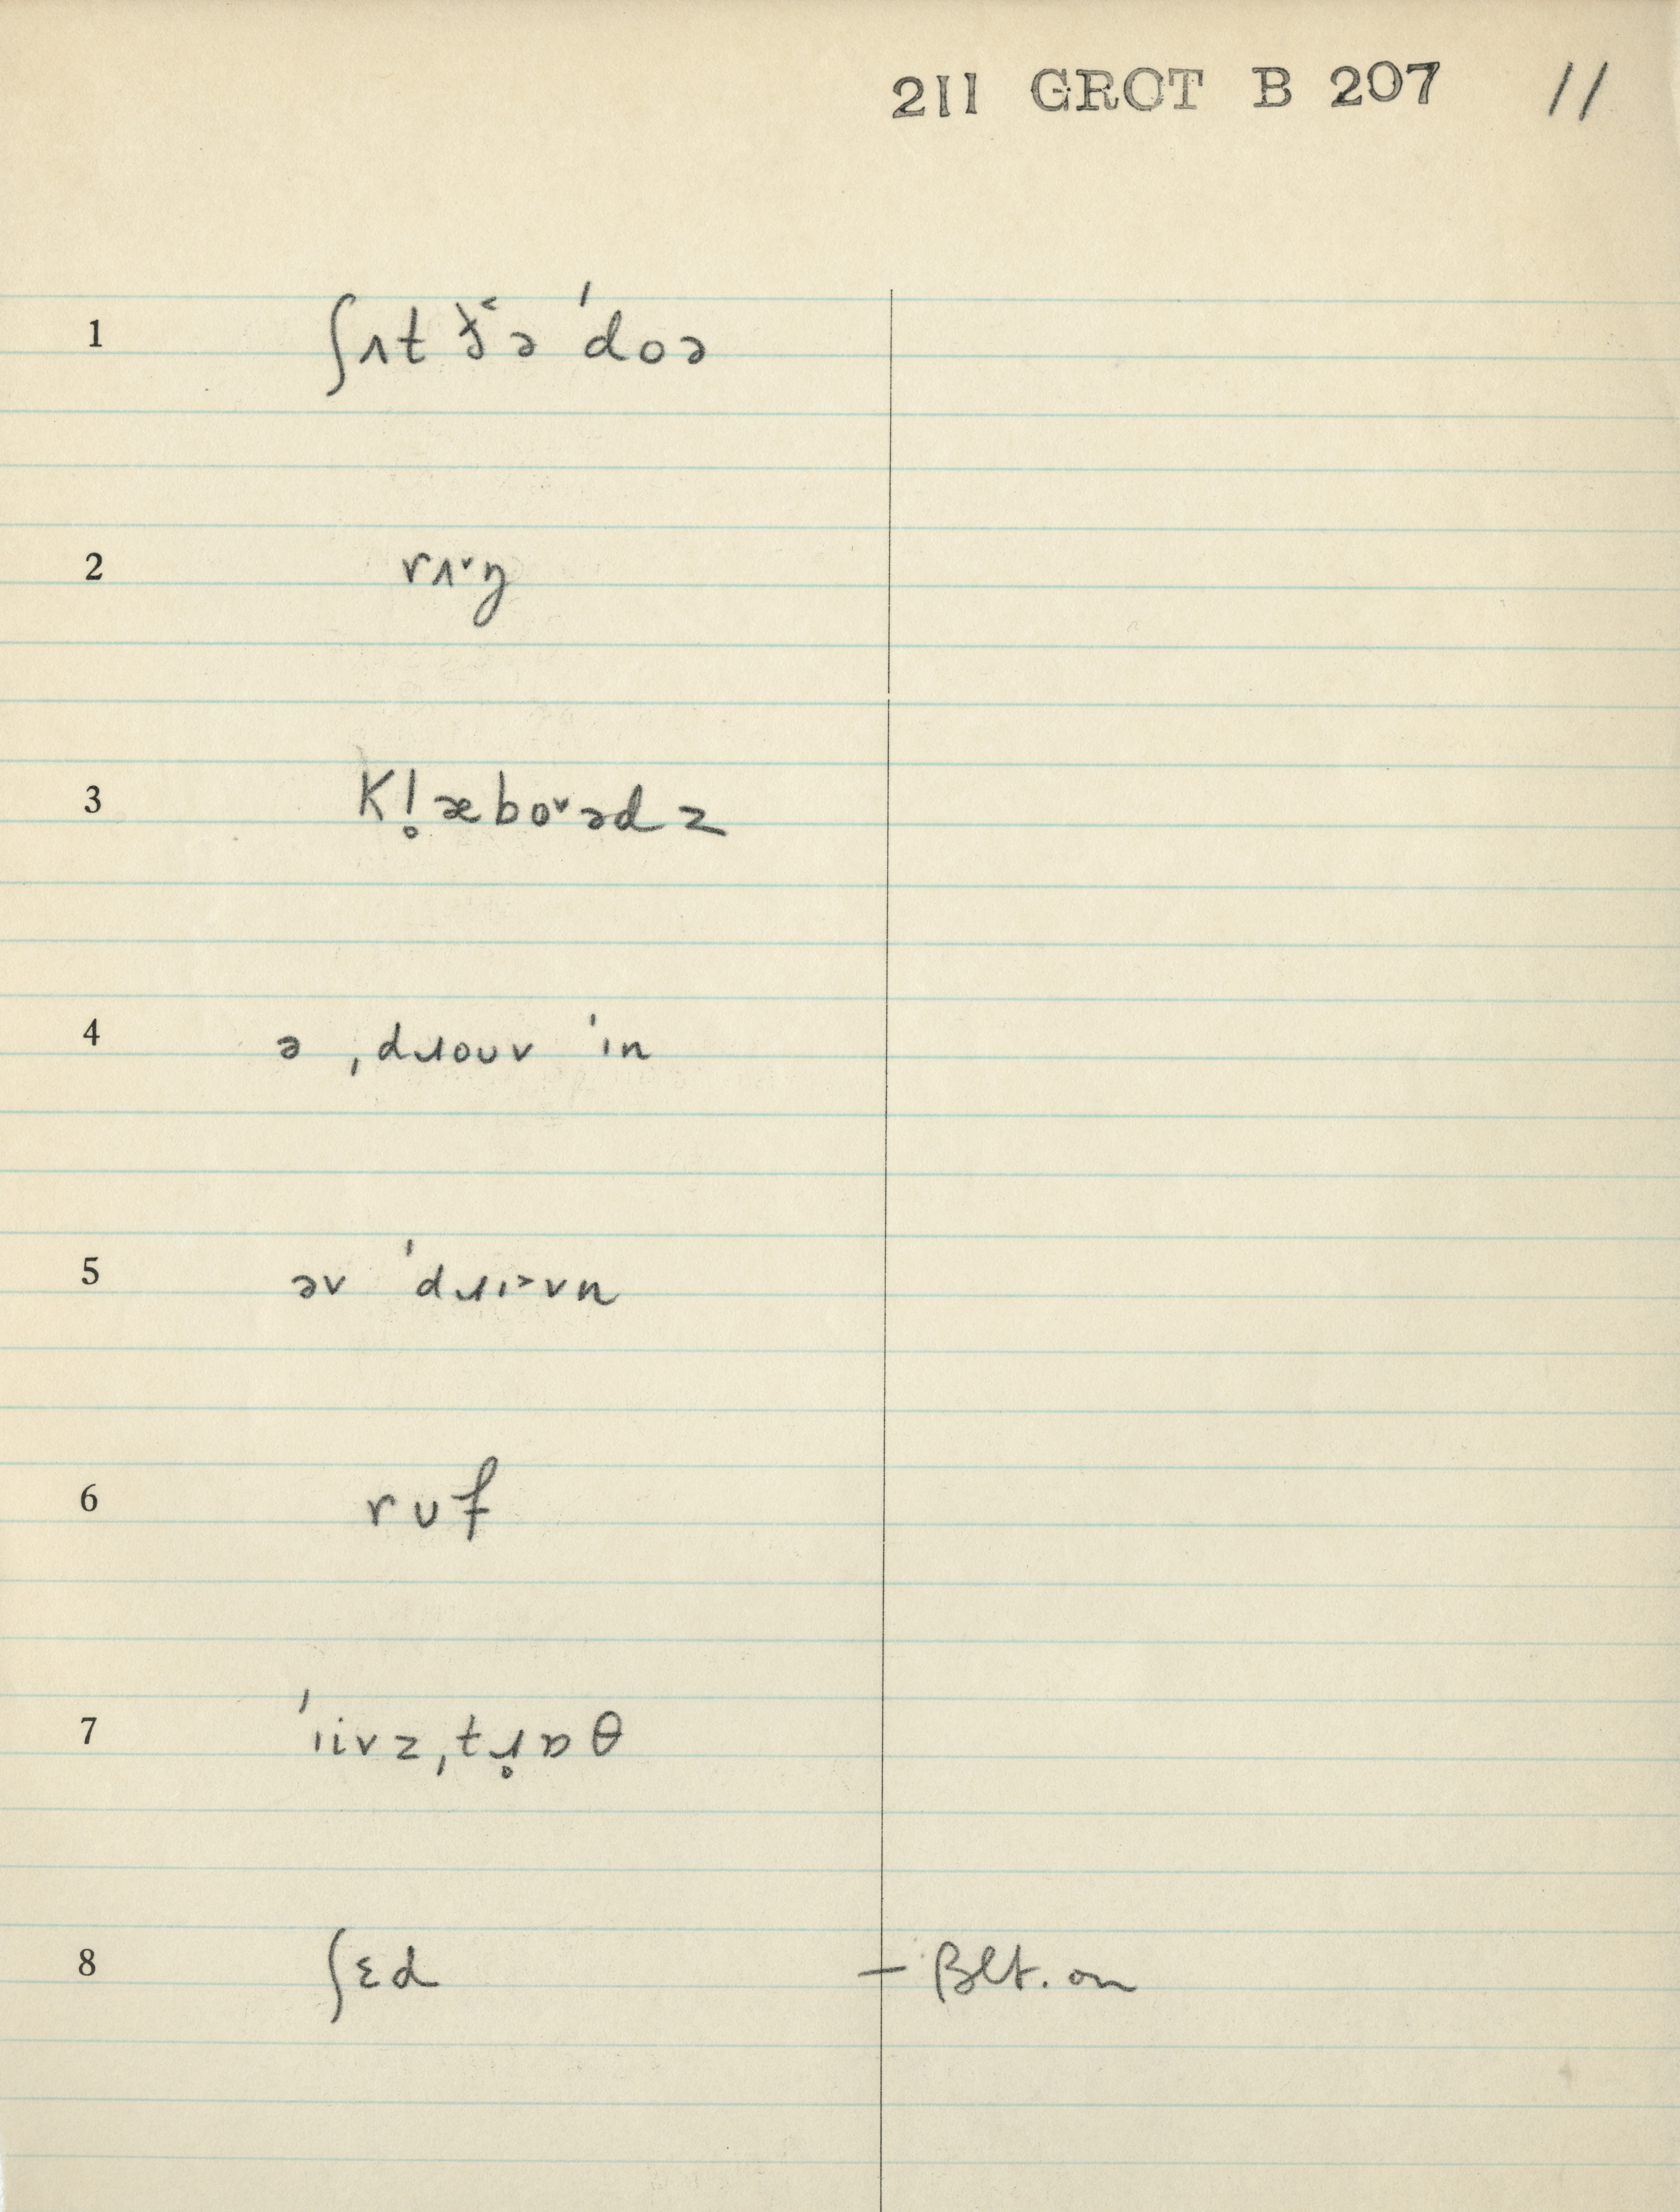 211 GROT B 207 11
1 ʃʌt ð˂ə ˈdoə
2 rʌ˅ŋ
3 kl̥æbo˅ədz
4 ə ˌdɹoʊv ˈin
5 əv ˈdɹɪ˃vn
6 rʊf
7 ˈiivzˌtɹ̥ɒθ
8 ʃɛd – Blt. on